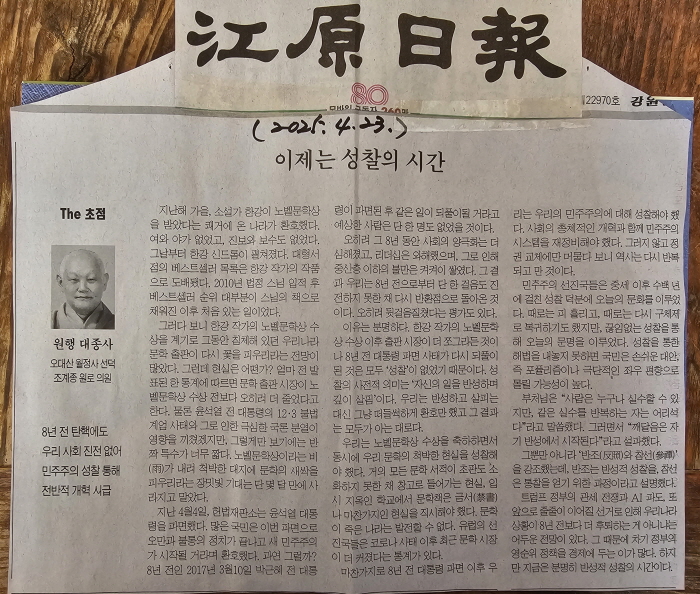 江原日報
80
(2025. 4. 23.)
22970호
강원
이제는 성찰의 시간
The 초점
원행 대종사
오대산 월정사 선덕
조계종 원로 의원
8년 전 탄핵에도
우리 사회 진전 없어
민주주의 성찰 통해
전반적 개혁 시급
지난해 가을, 소설가 한강이 노벨문학상
을 받았다는 쾌거에 온 나라가 환호했다.
여와 야가 없었고, 진보와 보수도 없었다.
그날부터 한강 신드롬이 펼쳐졌다. 대형서
점의 베스트셀러 목록은 한강 작가의 작품
으로 도배됐다. 2010년 법정 스님 입적 후
베스트셀러 순위 대부분이 스님의 책으로
채워진 이후 처음 있는 일이었다.
그러다 보니 한강 작가의 노벨문학상 수
상을 계기로 그동안 침체해 있던 우리나라
문학 출판이 다시 꽃을 피우리라는 전망이
많았다. 그런데 현실은 어떤가? 얼마 전 발
표된 한 통계에 따르면 문학 출판 시장이 노
벨문학상 수상 전보다 오히려 더 줄었다고
한다. 물론 윤석열 전 대통령의 12·3 불법
계엄 사태와 그로 인한 극심한 국론 분열이
영향을 끼쳤겠지만, 그렇게만 보기에는 반
짝 특수가 너무 짧다. 노벨문학상이라는 비
(雨)가 내려 척박한 대지에 문학의 새싹을
피우리라는 장밋빛 기대는 단 몇 달 만에 사
라지고 말았다.
지난 4월4일, 헌법재판소는 윤석열 대통
령을 파면했다. 많은 국민은 이번 파면으로
오만과 불통의 정치가 끝나고 새 민주주의
가 시작될 거라며 환호했다. 과연 그럴까?
8년 전인 2017년 3월10일 박근혜 전 대통
령이 파면된 후 같은 일이 되풀이될 거라고
예상할 사람은 단 한 명도 없었을 것이다.
오히려 그 8년 동안 사회의 양극화는 더
심해졌고, 리더십은 와해했으며, 그로 인해
중산층 이하의 불만은 커져 쌓였다. 그 결
과 우리는 8년 전으로부터 단 한 걸음도 진
전하지 못한 채 다시 반환점으로 돌아온 것
이다. 오히려 뒷걸음질쳤다는 평가도 있다.
이유는 분명하다. 한강 작가의 노벨문학
상 수상 이후 출판 시장이 더 쪼그라든 것이
나 8년 전 대통령 파면 사태가 다시 되풀이
된 것은 모두 '성찰'이 없었기 때문이다. 성
찰의 사전적 의미는 '자신의 일을 반성하며
깊이 살핌'이다. 우리는 반성하고 살피는
대신 그냥 떠들썩하게 환호만 했고 그 결과
는 모두가 아는 대로다.
우리는 노벨문학상 수상을 축하하면서
동시에 우리 문학의 척박한 현실을 성찰해
야 했다. 거의 모든 문학 서적이 초판도 소
화하지 못한 채 창고로 들어가는 현실, 입
시 지옥인 학교에서 문학책은 금서(禁書)
나 마찬가지인 현실을 직시해야 했다. 문학
이 죽은 나라는 발전할 수 없다. 유럽의 선
진국들은 코로나 사태 이후 최근 문학 시장
이 더 커졌다는 통계가 있다.
마찬가지로 8년 전 대통령 파면 이후 우
리는 우리의 민주주의에 대해 성찰해야 했
다. 사회의 총체적인 개혁과 함께 민주주의
시스템을 재정비해야 했다. 그러지 않고 정
권 교체에만 머물다 보니 역사는 다시 반복
되고 만 것이다.
민주주의 선진국들은 중세 이후 수백 년
에 걸친 성찰 덕분에 오늘의 문화를 이루었
다. 때로는 피 흘리고, 때로는 다시 구체제
로 복귀하기도 했지만, 끊임없는 성찰을 통
해 오늘의 문명을 이루었다. 성찰을 통한
해법을 내놓지 못하면 국민은 손쉬운 대안,
즉 포퓰리즘이나 극단적인 좌우 편향으로
몰릴 가능성이 높다.
부처님은 "사람은 누구나 실수할 수 있
지만, 같은 실수를 반복하는 자는 어리석
다"라고 말씀했다. 그러면서 "깨달음은 자
기 반성에서 시작된다"라고 설파했다.
그뿐만 아니라 '반조(反照)와 참선(參禪)'
을 강조했는데, 반조는 반성적 성찰을, 참선
은 통찰을 얻기 위한 과정이라고 설명했다.
트럼프 정부의 관세 전쟁과 AI 파도, 또
앞으로 줄줄이 이어질 선거로 인해 우리나라
상황이 8년 전보다 더 후퇴하는 게 아니냐는
어두운 전망이 있다. 그 때문에 차기 정부의
영순위 정책을 경제에 두는 이가 많다. 하지
만 지금은 분명히 반성적 성찰의 시간이다.